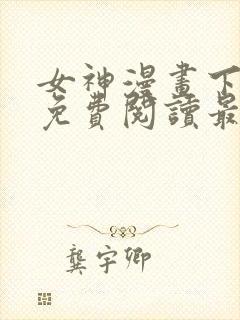 女神漫畫下
免費閱讀最
龔宇卿